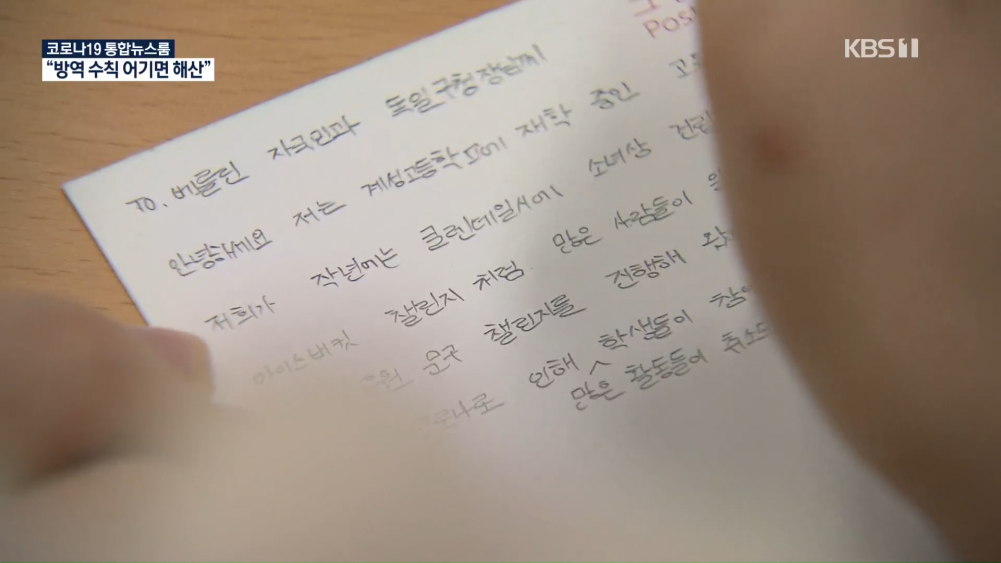 코로나19 통합뉴스룸
“방역 수칙 어기면 해산”
KBS1
POS
TO. 베를린 자크민과 독일구청장님께
안녕하세요 저는 계성고등학교에 재학 중인 고등
저희가 작년에는 글렌데일시에 소녀상 건립
아이스버킷 챌린지처럼 많은 사람들이
응원 문구 챌린지를 진행해 왔
코로나로 인해 학생들이 참여
많은 활동들이 취소